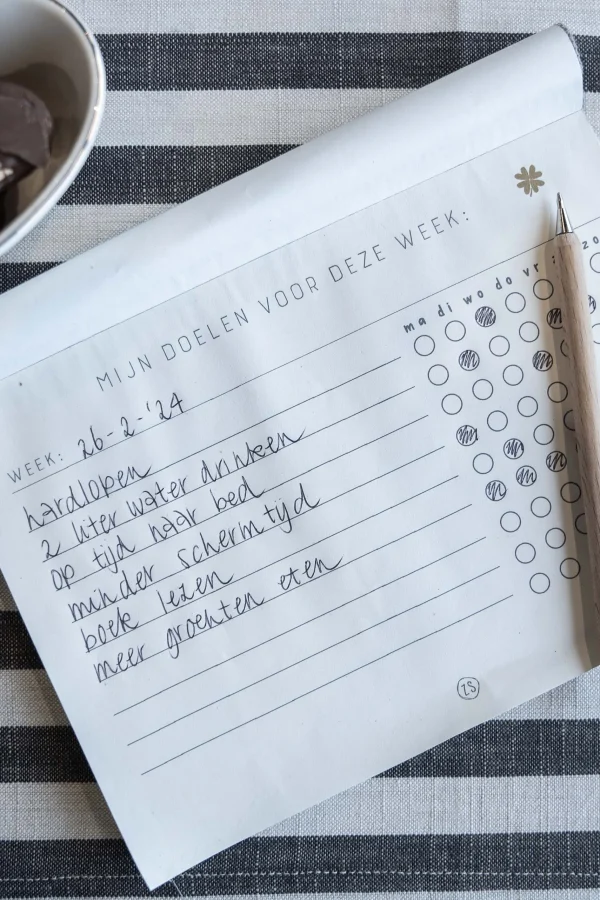 MIJN DOELEN VOOR DEZE WEEK:
ma di wo do vr : zo
WEEK: 26-2-'24
hardlopen
2 liter water drinken
op tijd naar bed
minder schermtijd
boek lezen
meer groenten eten
ZS